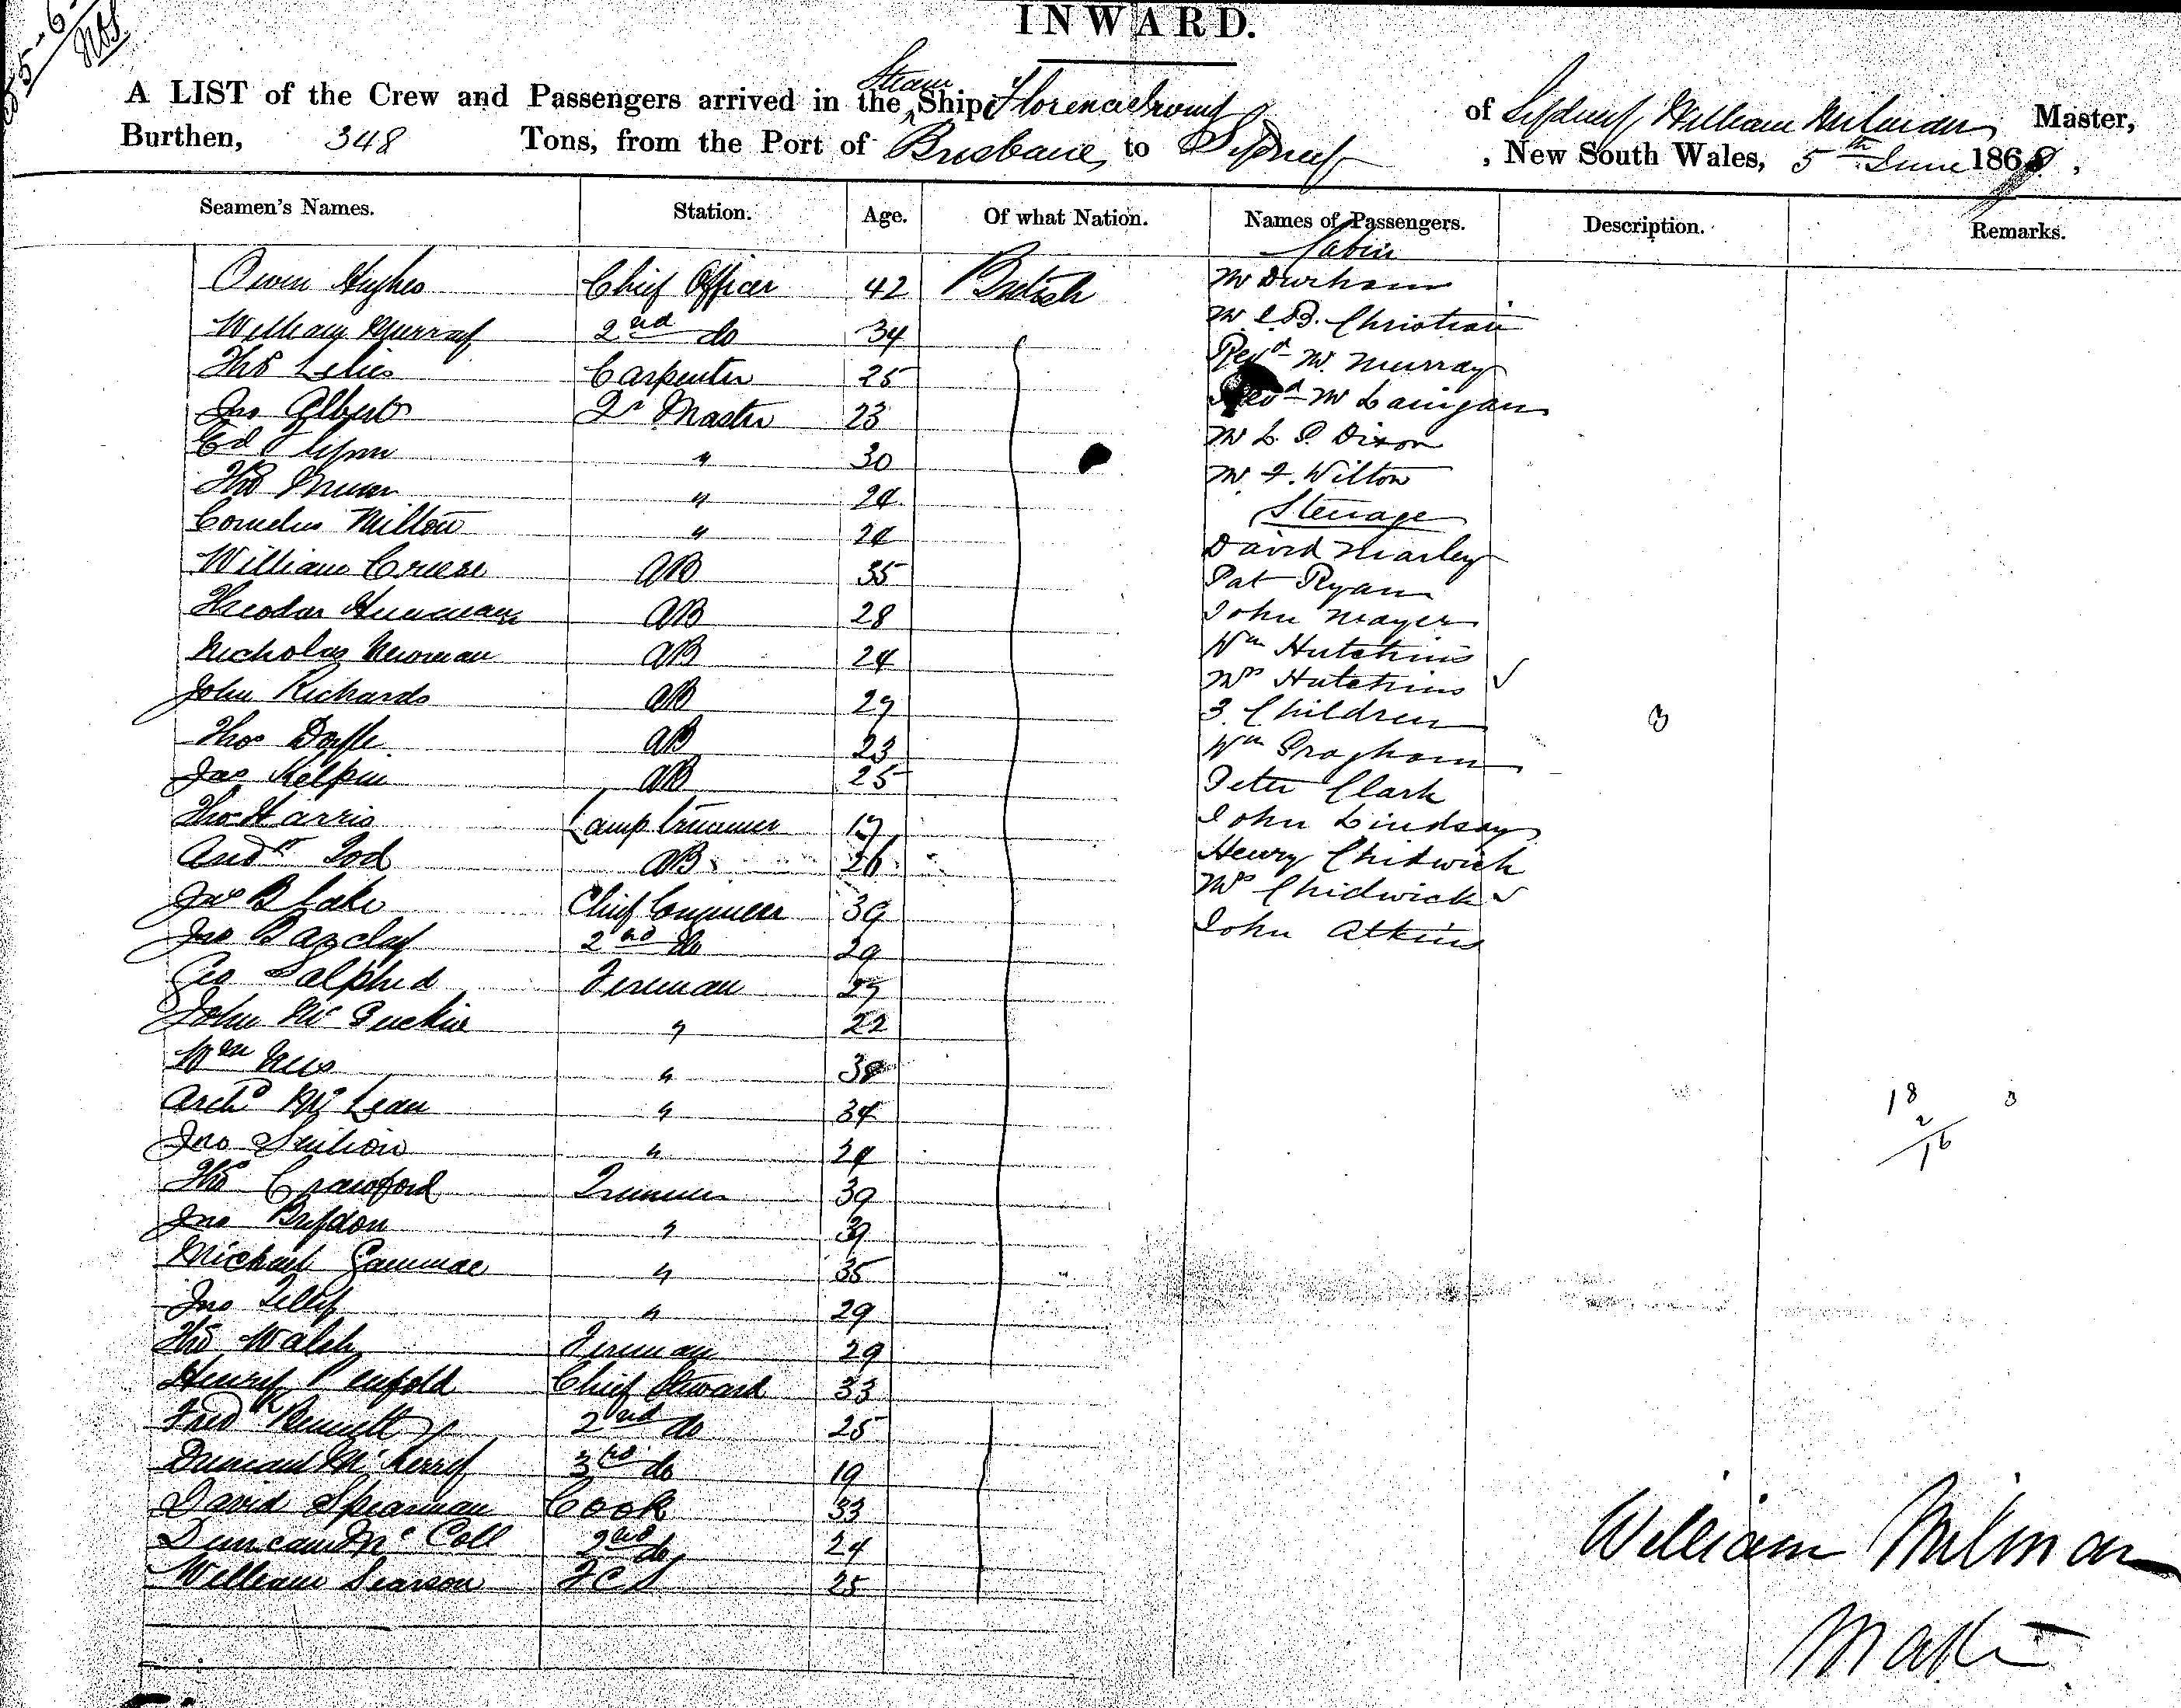 INWARD.
A LIST of the Crew and Passengers arrived in the Steam Ship Florence Irving of Sydney, William Milman Master,
Burthen, 348 Tons, from the Port of Brisbane, to Sydney, New South Wales, 5th June 186
Seamen's Names. Station. Age. Of what Nation. Names of Passengers. Description. Remarks.
Cabin
Owen Hughes Chief Officer 42 British Mr Durham
William Murray 2nd do 34 Mr C. B. Christian
Thos Carpenter 25 Revd Mr. Murray
Jno Albert Qr Master 23 Revd Mr Lanigan
Ed " 30 Mr L. P. Dixon
Thos " 24 Mr. F. Wilton
Cornelius Milton " 24 Steerage
William Creese AB 35 David Marley
Theodor AB 28 Pat Ryan
Nicholas Newman AB 24 John Mayer
John Richards AB 29 Wm Hutchins
Thos Doyle AB 23 Mrs Hutchins ✓
Jas Kelpin AB 25 3 Children 3
Thos Harris Lamp trimmer 17 Wm
Andw Tod AB 26 Peter Clark
Jno Blake Chief Engineer 39 John Lindsay
Jno Barclay 2nd do 29 Henry Chidwick
Geo Fireman 27 Mrs Chidwick ✓
John Mc " 22 John Atkins
Wm " 38
Archd McLean " 34 18 3
Jno " 24 2
16
Thos Crawford Trimmer 39
Jno Brydon " 39
Michael " 35
Jno Tilly " 29
Thos Walsh Fireman 29
Henry Penfold Chief Steward 33
Fredk Bennett 2nd do 25
Duncan McKerry 3rd do 19
David Spearman Cook 33
Duncan McColl 2nd do 24
William Searson FCS 25
William Milman
Master